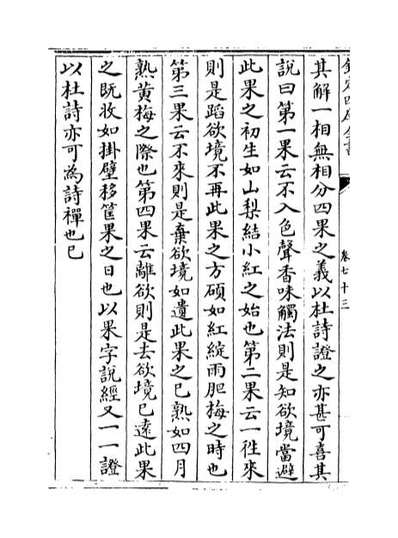 欽定四庫全書
卷七十三
其解一相無相分四果之義以杜詩證之亦甚可喜其
說曰第一果云不入色聲香味觸法則是知欲境當避
此果之初生如山梨結小紅之始也第二果云一徃來
則是蹈欲境不再此果之方碩如紅綻雨肥梅之時也
第三果云不來則是棄欲境如遺此果之已熟如四月
熟黄梅之際也第四果云離欲則是去欲境已遠此果
之既收如掛壁移筐果之日也以果字說經又一一證
以杜詩亦可為詩禪也已